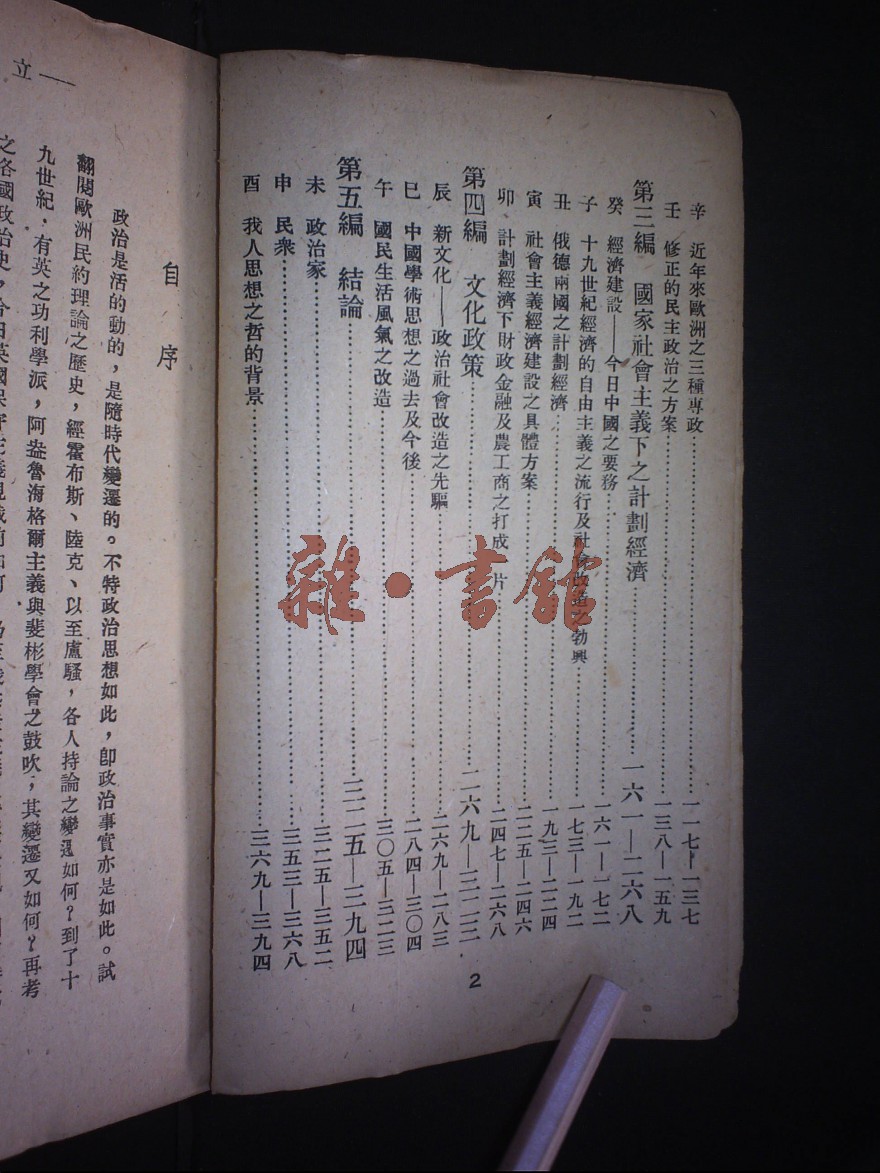 辛　近年來歐洲之三種專政……一一七—一三七
壬　修正的民主政治之方案……一三八—一五九
第三編　國家社會主義下之計劃經濟……一六一—二六八
癸　經濟建設——今日中國之要務……一六一—一七二
子　十九世紀經濟的自由主義之流行及社會改造之勃興……一七三—一九二
丑　俄德兩國之計劃經濟……一九三—二二四
寅　社會主義經濟建設之具體方案……二二五—二四六
卯　計劃經濟下財政金融及農工商之打成一片……二四七—二六八
第四編　文化政策……二六九—三二三
辰　新文化——政治社會改造之先驅……二六九—二八三
巳　中國學術思想之過去及今後……二八四—三〇四
午　國民生活風氣之改造……三〇五—三二三
第五編　結論……三二五—三九四
未　政治家……三二五—三五二
申　民衆……三五三—三六八
酉　我人思想之哲的背景……三六九—三九四
2
雜·書館
立——
自序
政治是活的動的，是隨時代變遷的。不特政治思想如此，卽政治事實亦是如此。試
翻閱歐洲民約理論之歷史，經霍布斯、陸克、以至盧騷，各人持論之變遷如何？到了十
九世紀，有英之功利學派，阿盎魯海格爾主義與斐彬學會之鼓吹，其變遷又如何？再考
之各國政治史，今日英國保守